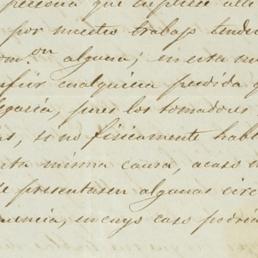 persona que
por nuestro trabajo
om.on alguna; in esta
cualquiera perdida q
pues los tomadores
as, si no fisicamente habl
ta misma causa, acaso
se presentasen algunas circ
uencia, en cuyo caso podri